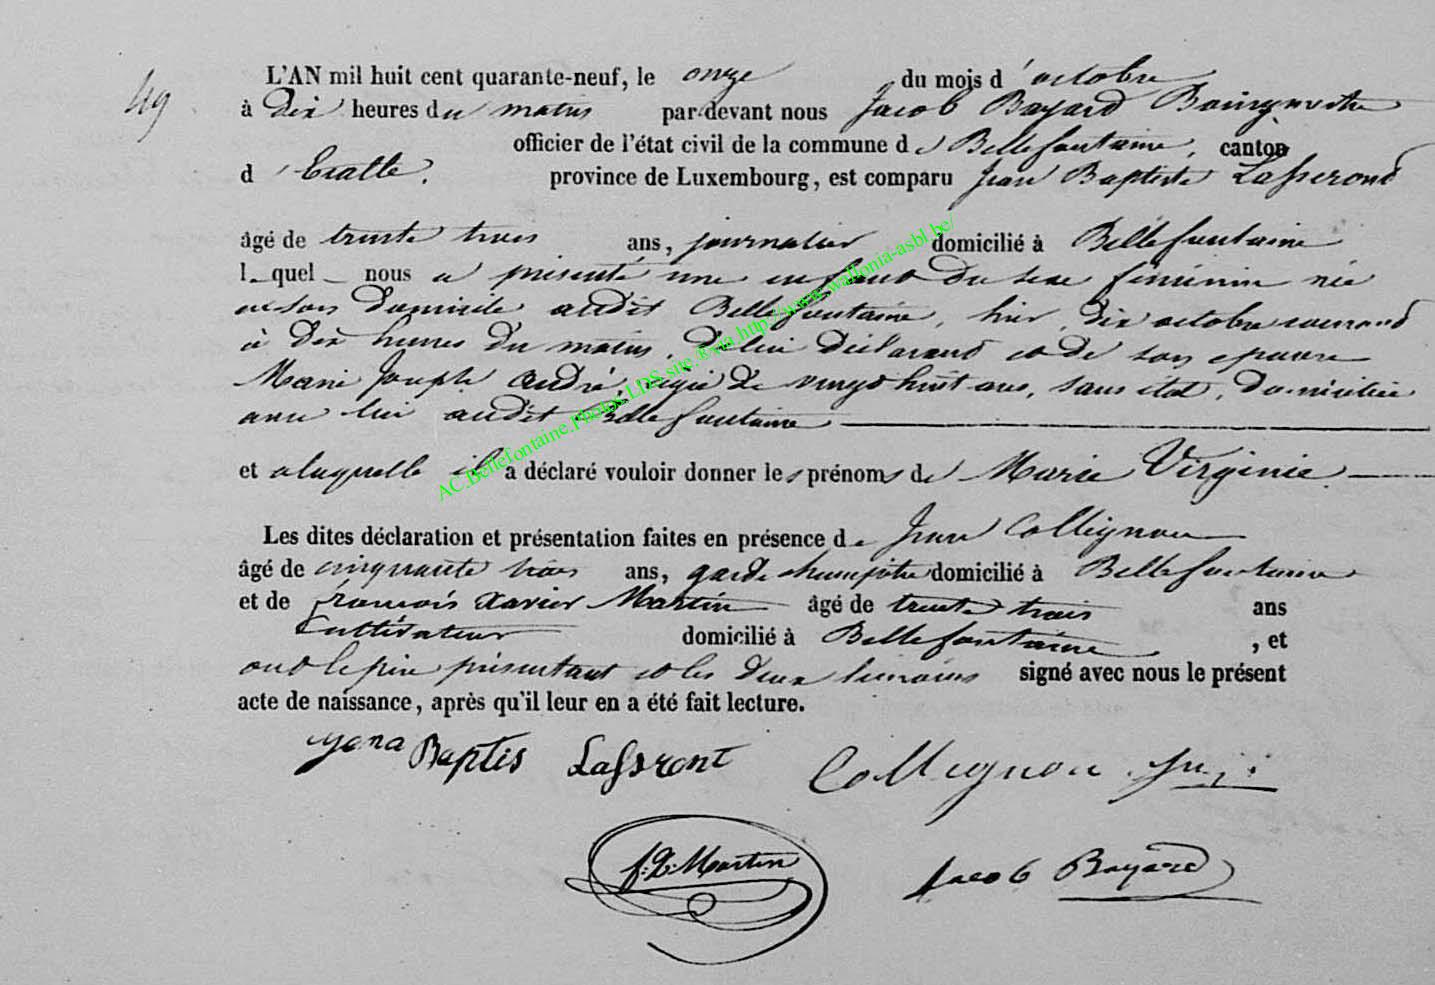 49
L'AN mil huit cent quarante-neuf, le onze du mois d'octobre
à dix heures du matin par devant nous Jacob Bayard Bourgmestre
officier de l'état civil de la commune de Bellefontaine, canton
d'Etalle. province de Luxembourg, est comparu Jean Baptiste Lasserond
âgé de trente trois ans, journalier domicilié à Bellefontaine
l_quel_ nous a présenté une enfant du sexe féminin née
en son domicile audit Bellefontaine, hier, dix octobre courand
à dix heures du matin, de lui déclarand et de son epouse
Marie Joseph André, agée de vingt huit ans, sans état, domiciliée
avec lui audit Bellefontaine
et a laquelle il a déclaré vouloir donner les prénoms de Marie Virginie
Les dites déclaration et présentation faites en présence de Jean Collignon
âgé de cinquante trois ans, garde champêtre domicilié à Bellefontaine
et de François Xavier Martin âgé de trente trois ans
Cultivateur domicilié à Bellefontaine, et
ont le père présentant et les deux témoins signé avec nous le présent
acte de naissance, après qu'il leur en a été fait lecture.
Baptis Lassront Collignon
f: X: Martin Jacob Bayard
AC.Bellefontaine.Photos.LDS.site.®via.http://www.wallonia-asbl.be/